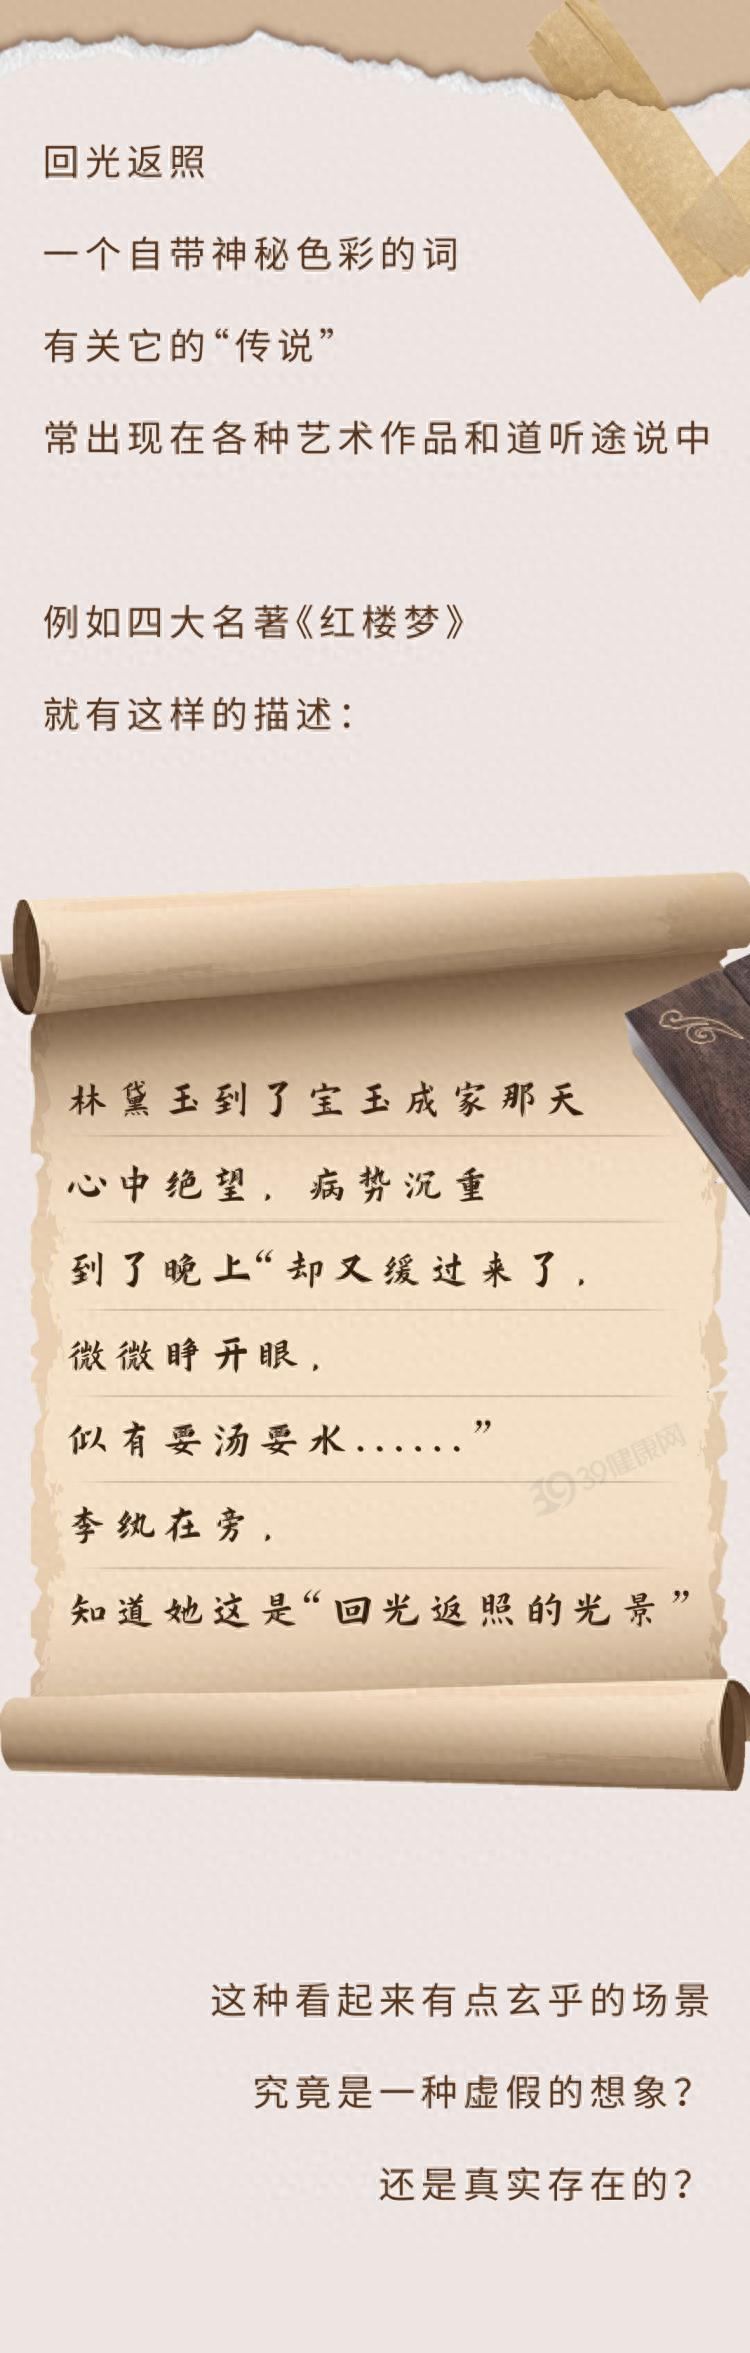 回光返照
一个自带神秘色彩的词
有关它的“传说”
常出现在各种艺术作品和道听途说中
例如四大名著《红楼梦》
就有这样的描述：
林黛玉到了宝玉成家那天
心中绝望，病势沉重
到了晚上“却又缓过来了，
微微睁开眼，
似有要汤要水......”
39健康网
李纨在旁，
知道她这是“回光返照的光景”
这种看起来有点玄乎的场景
究竟是一种虚假的想象？
还是真实存在的？